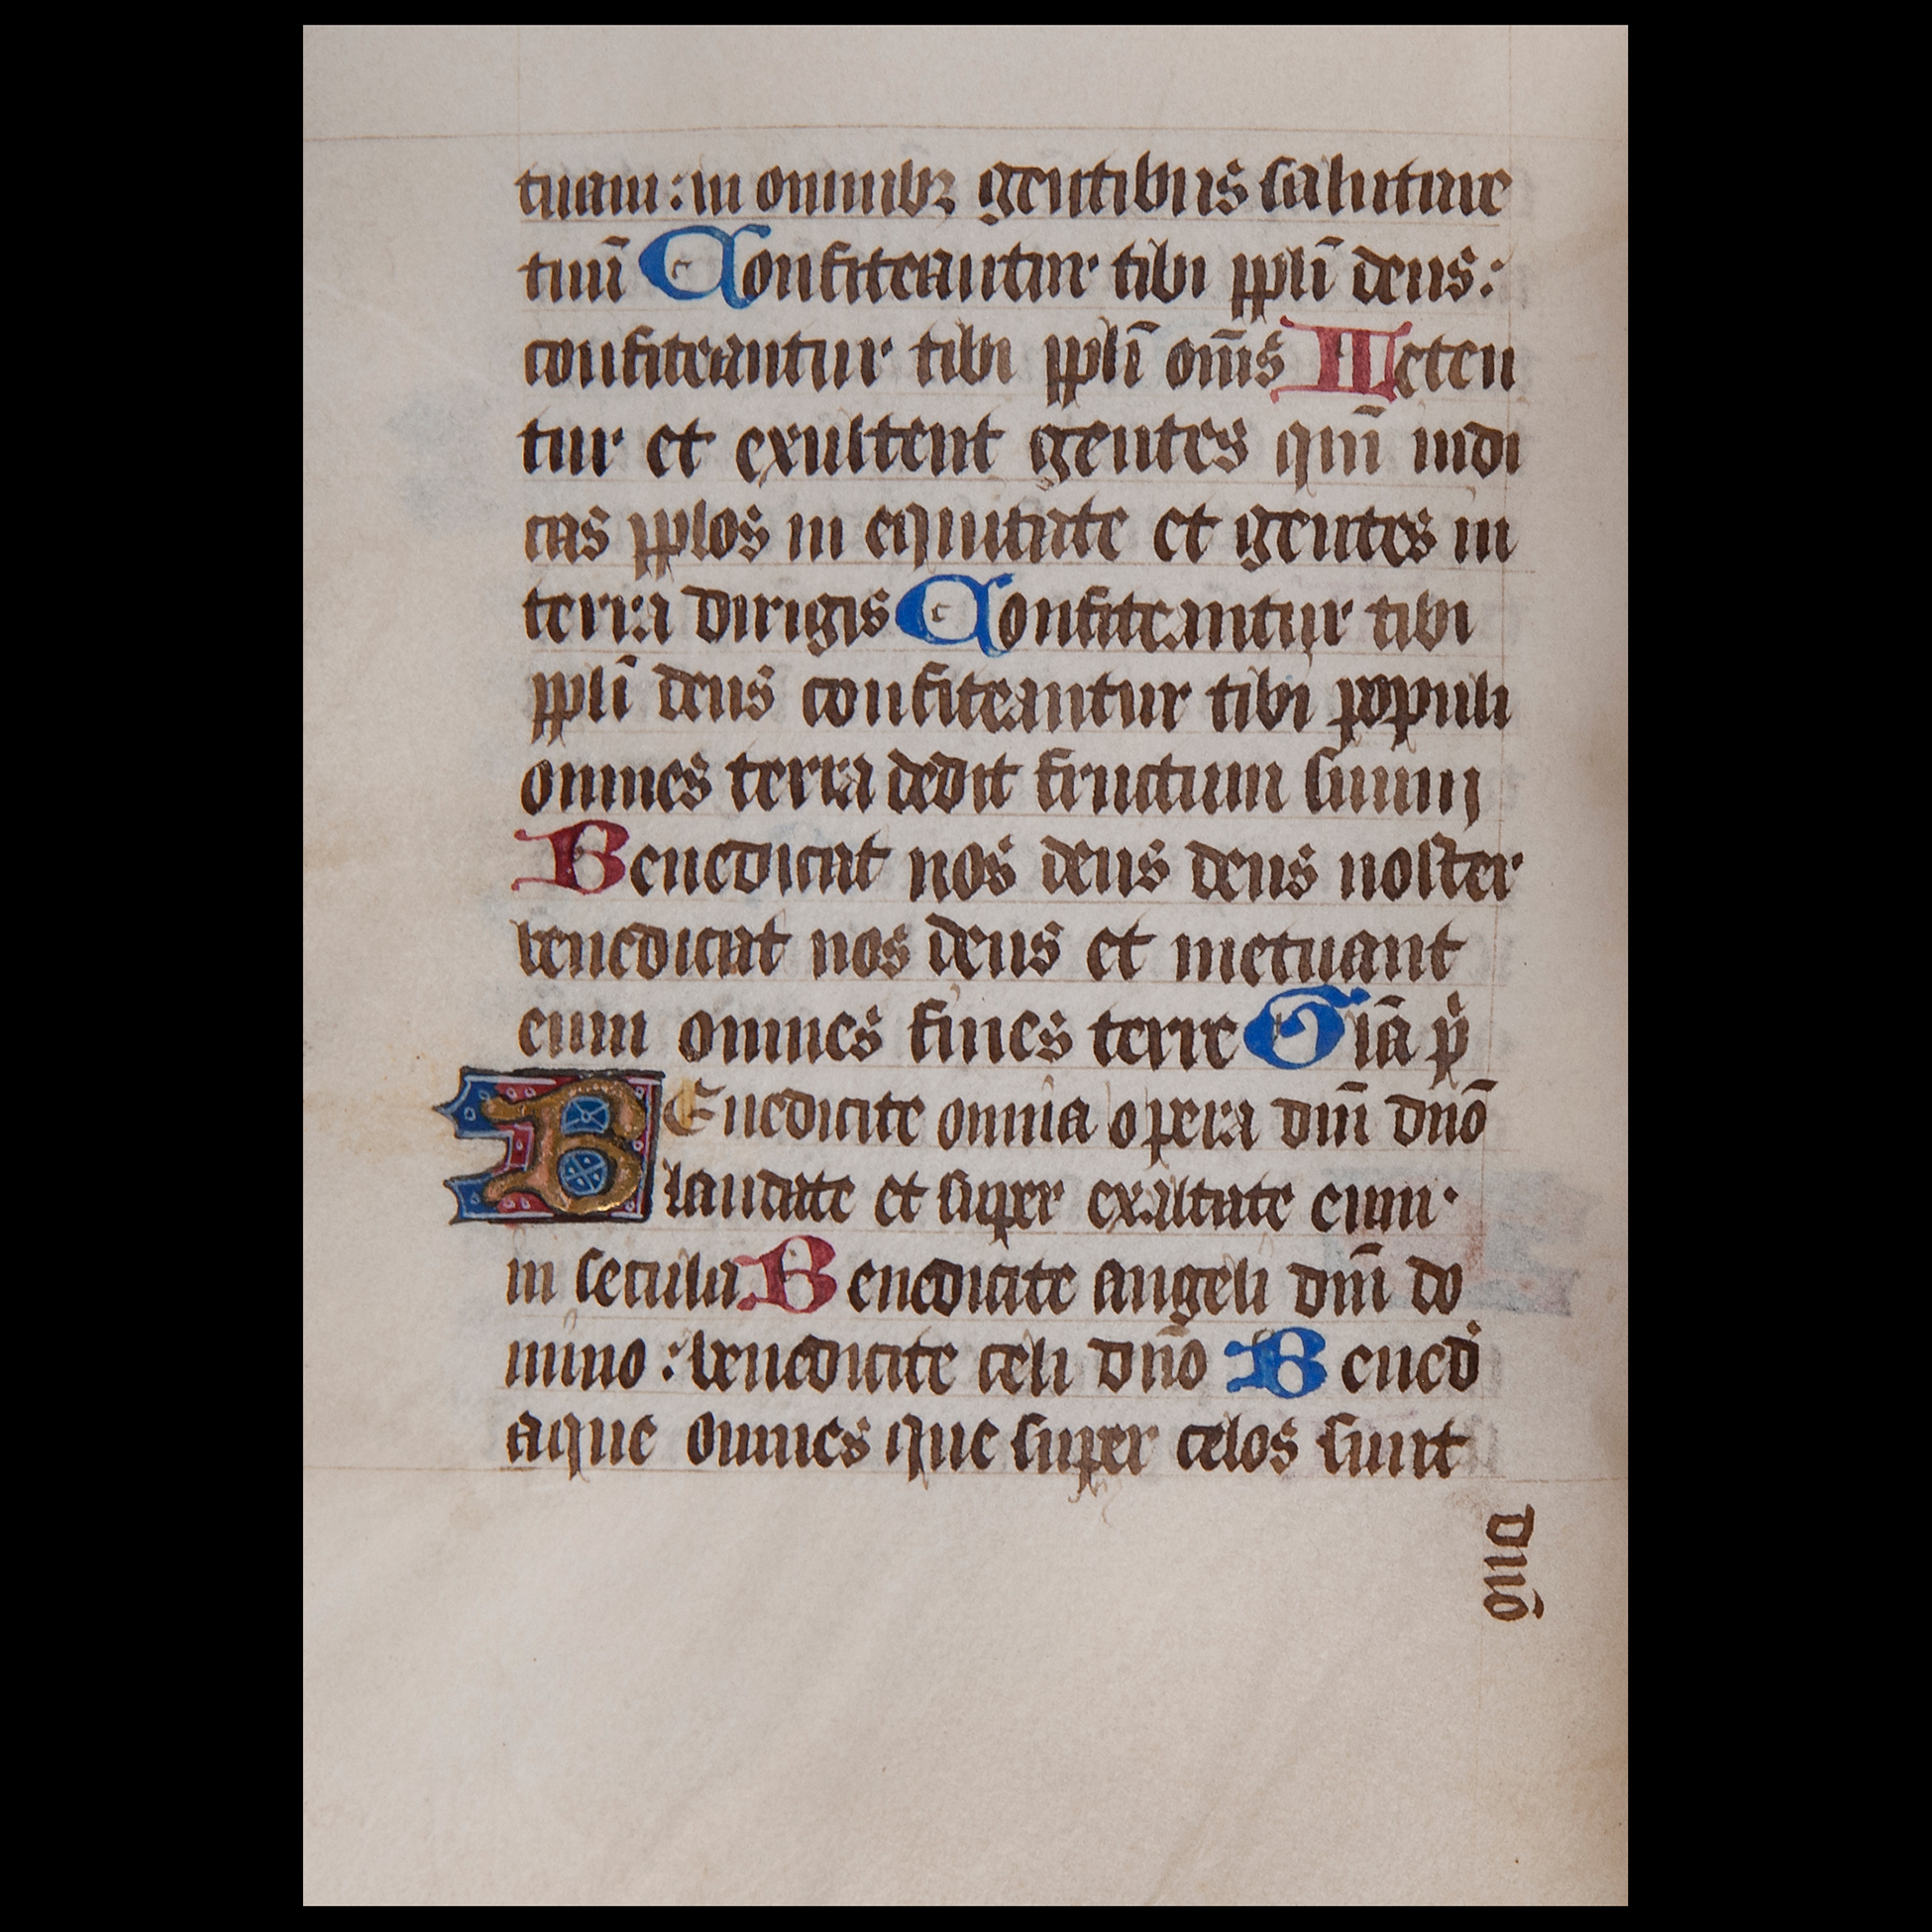 tuam : in omnibꝫ gentibus salutare
tuū Confiteantur tibi ppli̅ deus :
confiteantur tibi ppli̅ om̅s Leten
tur et exultent gentes qm̅ iudi
cas pplos in equitate et gentes in
terra dirigis Confiteantur tibi
ppli̅ deus confiteantur tibi populi
omnes terra dedit fructum suum
Benedicat nos deus deus noster
benedicat nos deus et metuant
eum omnes fines terre Gl̅ia p̅
BEnedicite omnia opera dn̅i dn̅o
laudate et super exaltate eum ·
in secula Benedicite angeli dn̅i do
mino : benedicite celi dn̅o Bened̓
aque omnes que super celos sunt
dn̅o